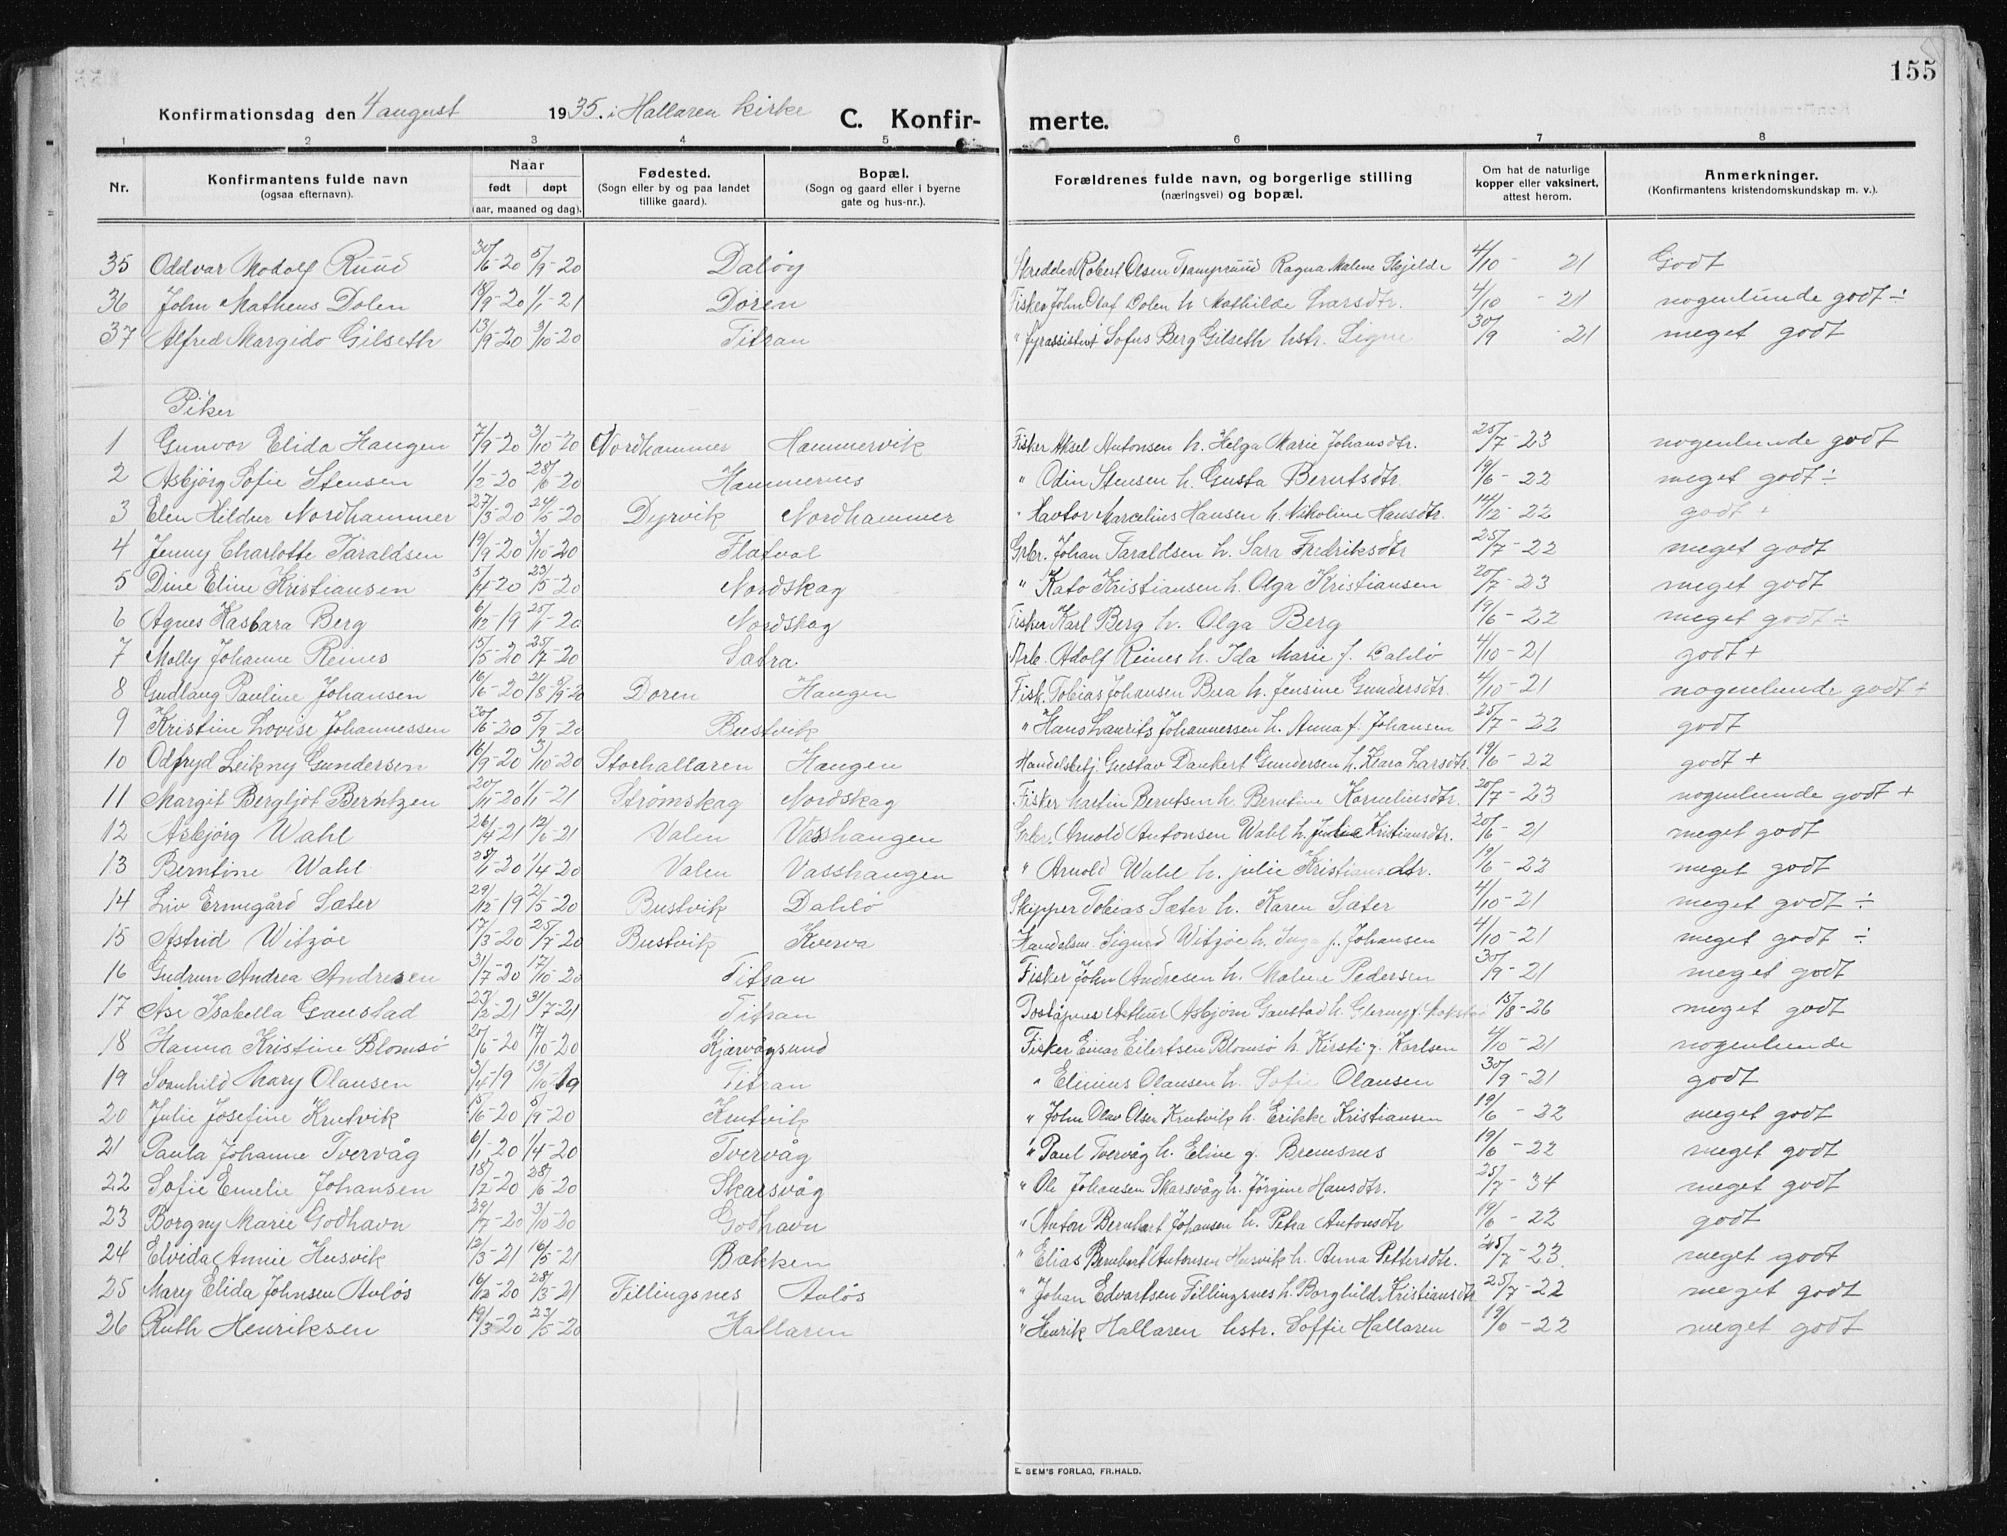 155
Konfirmationsdag den 4 august 1935. i Hallaren kirke
C. Konfirmerte.
1 2 3 4 5 6 7 8
Nr. Konfirmantens fulde navn (ogsaa efternavn). Naar født døpt (aar, maaned og dag). Fødested. (Sogn eller by og paa landet tillike gaard). Bopæl. (Sogn og gaard eller i byerne gate og hus-nr.). Forældrenes fulde navn, og borgerlige stilling (næringsvei) og bopæl. Om hat de naturlige kopper eller vaksinert, attest herom. Anmerkninger. (Konfirmantens kristendomskundskap m. v.).
35 Oddvar Modolf Ruud 30/6-20 5/9-20 Daløy Robert Olsen Ragna Malene Skjelde 4/10 - 21 Godt
36 John Matheus Dolen 18/9-20 1/1-21 Doren Fisker John Olaf Dolen h. Mathilde Larsdtr. 4/10 - 21 nogenlunde godt ÷
37 Alfred Margido Gilseth 13/9-20 3/10-20 Titran " Fyrassistent Sofus Berg Gilseth hstr. Signe 30/9 - 21 meget godt
Piker
1 Gunvor Elida Haugen 7/9-20 3/10-20 Nordhammer Hammervik Fisker Aksel Antonsen h. Helga Marie Johansdtr. 25/7-23 nogenlunde godt
2 Asbjørg Sofie Stensen 1/2-20 28/6-20 Hammernes " Odin Stensen h. Gusta Berntsdtr. 19/6-22 meget godt ÷
3 Elen Hildur Nordhammer 27/3-20 24/5-20 Dyrvik Nordhammer " Havtor Marcelius Hansen h. Nikoline Hansdtr. 14/12-22 godt +
4 Jenny Charlotte Taraldsen 19/9-20 3/10-20 Flatval Grbr. Johan Taraldsen h. Sara Fredriksdtr 25/7-22 meget godt
5 Dine Eline Kristiansen 5/4-20 23/5-20 Nordskag " Kato Kristiansen h. Olga Kristiansen 20/7-23 meget godt
6 Agnes Hasbara Berg 6/12-19 25/1-20 Nordskag Fisker Karl Berg h. Olga Berg 19/6-22 meget godt ÷
7 Molly Johanne Reines 15/5-20 25/7-20 Sætra Arb. Adolf Reines h. Ida Marie f. Dahlø 4/10-21 godt +
8 Gudlaug Pauline Johansen 16/6-20 21/8 5/9-20 Doren Haugen Fisk. Tobias Johansen Bua h. Jensine Gundersdtr. 4/10-21 nogenlunde godt ÷
9 Kristine Lovise Johannessen 30/6-20 5/9-20 Bustvik " Hans Laurits Johannessen h. Anna f. Johansen 25/7-22 godt
10 Odfryd Leikny Gundersen 16/9-20 3/10-20 Storhallaren Haugen Handelsbetj. Gustav Dankert Gundersen h. Klara Larsdtr. 19/6-22 godt +
11 Margit Bergljot Berntzen 20/11-20 1/1-21 Strømskag Nordskag Fisker Martin Berntsen h. Berntine Korneliusdtr. 20/7-23 nogenlunde godt +
12 Asbjørg Wahl 26/4-21 12/6-21 Valen Vasshaugen Grbr. Arnold Antonsen Wahl h. Julie Kristiansdtr. 20/6-21 meget godt
13 Berntine Wahl 25/1-20 1/4-20 Valen Vasshaugen " Arnold Wahl h. julie Kristiansdtr. 19/6-22 meget godt
14 Liv Ermegård Sæter 29/12-19 2/5-20 Bustvik Dahlø Skipper Tobias Sæter h. Karen Sæter 4/10-21 meget godt ÷
15 Astrid Witzøe 17/3-20 25/7-20 Bustvik Kverva Handelsm. Sigurd Witzøe h. Inga f. Johansen 4/10-21 meget godt ÷
16 Gudrun Andrea Andresen 3/7-20 17/10-20 Titran Fisker John Andresen h. Malene Pedersen 30/9-21 meget godt
17 Åse Isabella Gaustad 22/2-21 3/7-21 Titran Poståpner Arthur Asbjørn Gaustad h. 15/8-26 meget godt
18 Hanna Kristine Blomsø 25/6-20 17/10-20 Kjærvågsund Fisker Einar Eilertsen Blomsø h. Kirsti g. Karlsen 4/10-21 nogenlunde
19 Svanhild Mary Olausen 3/4-19 13/10-19 Titran " Elinius Olausen h. Sofie Olausen 30/9-21 godt
20 Julie Josefine Krutvik 15/6-20 5/9-20 Krutvik " John Olav Olsen Krutvik h. Erikke Kristiansen 19/6-22 meget godt
21 Paula Johanne Tvervåg 6/1-20 1/4-20 Tvervåg " Paul Tvervåg h. Eline g. Bremsnes 19/6-22 meget godt
22 Sofie Emelie Johansen 18/2-20 28/6-20 Skarsvåg " Ole Johansen Skarsvåg h. Jørgine Hansdtr. 25/7-34 meget godt
23 Borgny Marie Godhavn 29/7-20 3/10-20 Godhavn " Anton Bernhart Johansen h. Petra Antonsdtr 19/6-22 godt
24 Elvida Annie Husvik 12/3-21 16/5-21 Bakken " Elias Bernhert Antonsen Husvik h. Anna Pettersdtr. 25/7-23. meget godt
25 Mary Elida Johnsen Auløs 16/12-20 28/3-21 Fillingsnes Auløs " Johan Edvartsen Fillingsnes h. Borghild Kristiansdtr 25/7-22 meget godt
26 Ruth Henriksen 19/3-20 23/5-20 Hallaren " Henrik Hallaren hstr. Soffie Hallaren 19/6-22 meget godt
E. SEM'S FORLAG, FR.HALD.